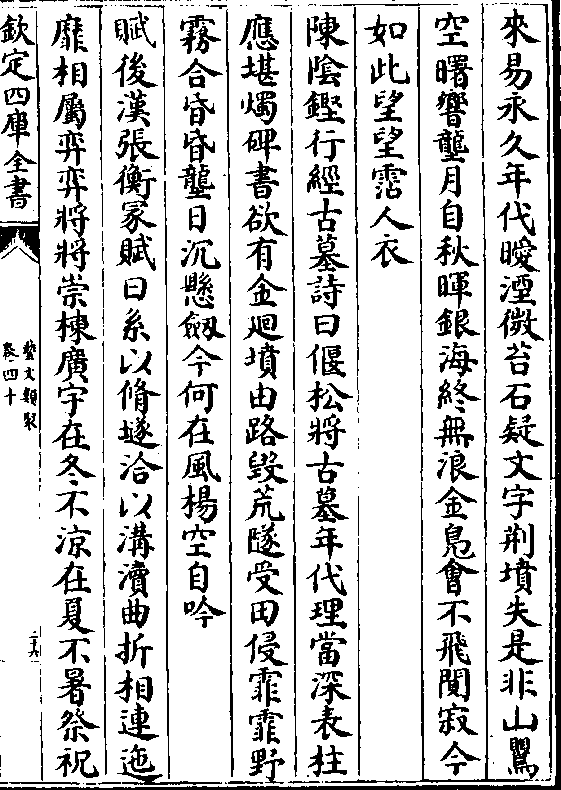 來易永久年代曖湮微苔石疑文字荆墳失是非山鸎
空曙響壟月自秋暉銀海終無浪金鳬會不飛闃寂今
如此望望霑人衣
陳陰鏗行經古墓詩曰偃松將古墓年代理當深表柱
應堪燭碑書欲有金廻墳由路毀荒隧受田侵霏霏野
霧合昏昏壟日沉懸劔今何在風楊空自吟
賦後漢張衡冢賦曰系以脩墜洽以溝瀆曲折相連迤
靡相屬弈弈將將崇棟廣宇在冬不涼在夏不暑祭祀
欽定四庫全書
藝文類聚
卷四十
二十九